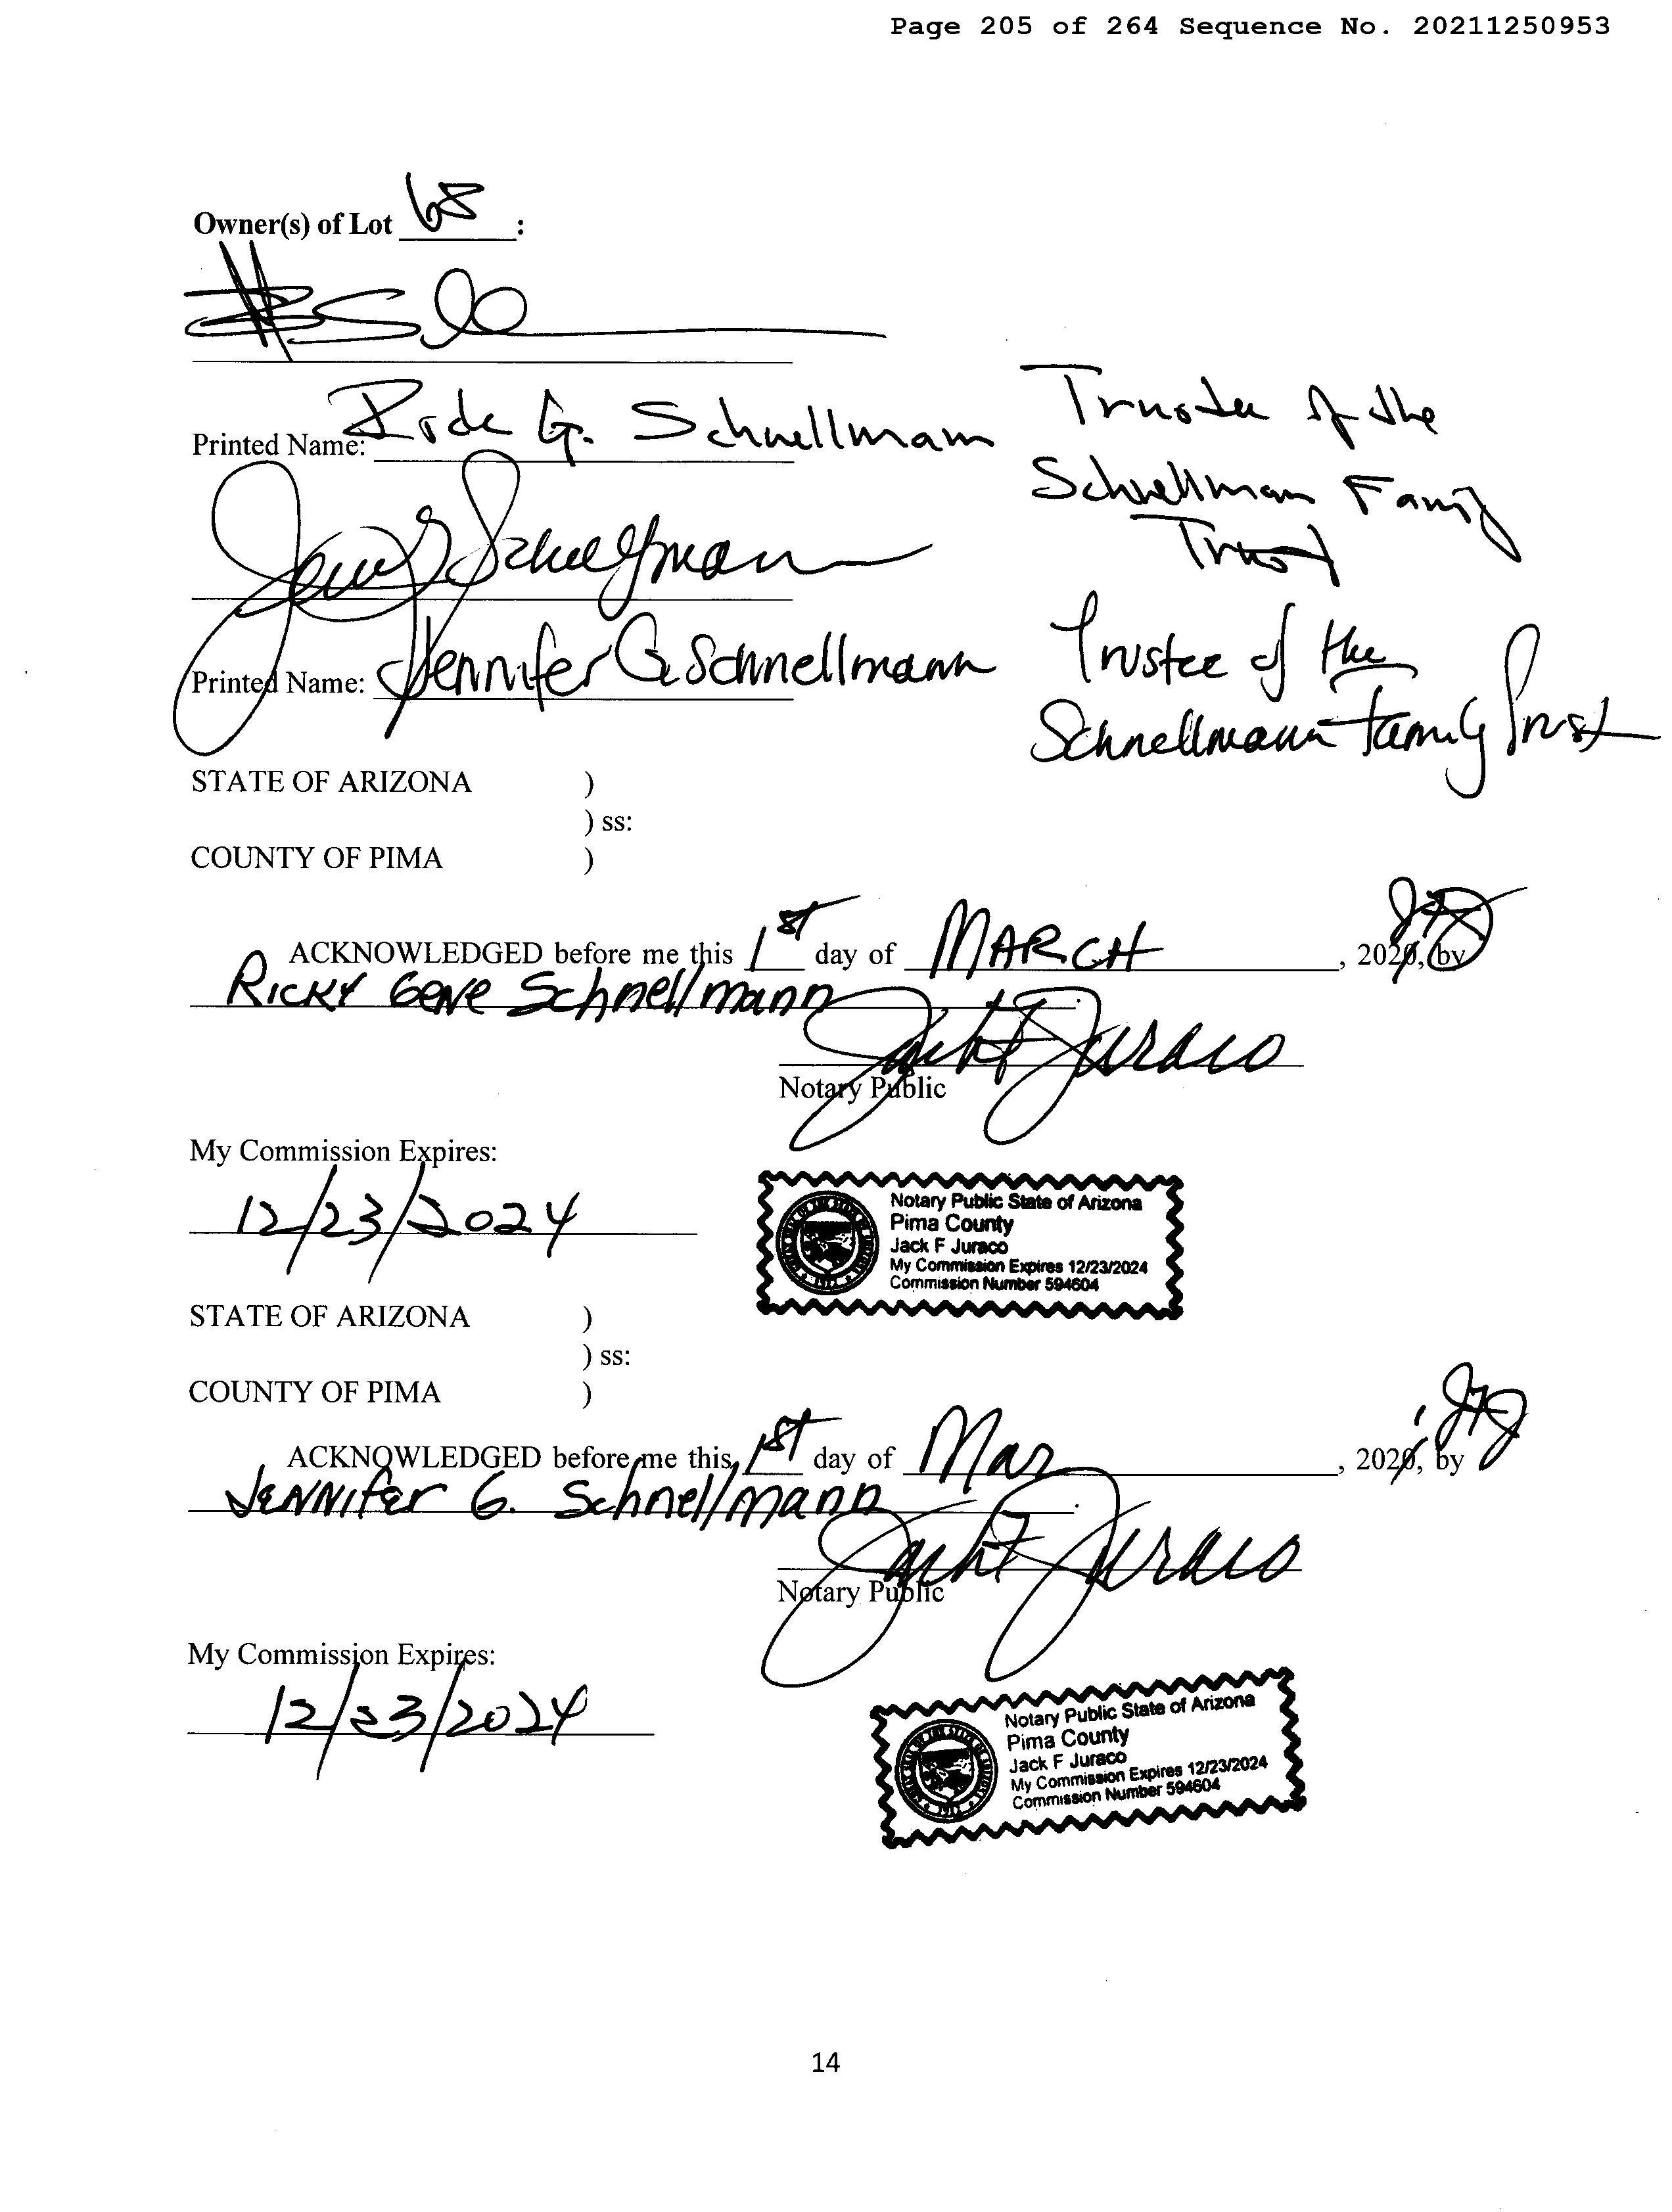 Page 205 of 264 Sequence No. 20211250953
Owner(s) of Lot 68 :
Printed Name: Rick G. Schnellmann
Trustee of the
Schnellmann Family
Trust
Jennifer Schnellmann
Printed Name: Jennifer G. Schnellmann
Trustee of the
Schnellmann Family Trust
STATE OF ARIZONA )
) ss:
COUNTY OF PIMA )
ACKNOWLEDGED before me this 1st day of MARCH , 2020, by
RICKY GENE Schnellmann
Jack F Juraco
Notary Public
My Commission Expires:
12/23/2024
Notary Public State of Arizona
Pima County
Jack F Juraco
My Commission Expires 12/23/2024
Commission Number 594604
STATE OF ARIZONA )
) ss:
COUNTY OF PIMA )
ACKNOWLEDGED before me this 1st day of Mar , 2020, by
JENNIFER G. Schnellmann
Jack F Juraco
Notary Public
My Commission Expires:
12/23/2024
Notary Public State of Arizona
Pima County
Jack F Juraco
My Commission Expires 12/23/2024
Commission Number 594604
14